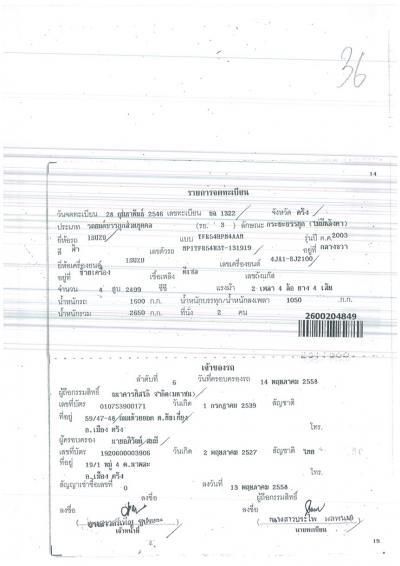 36
14
รายการจดทะเบียน
วันจดทะเบียน 28 กุมภาพันธ์ 2546 เลขทะเบียน บล 1322 จังหวัด ตรัง
ประเภท รถยนต์บรรทุกส่วนบุคคล (รย. 3 ) ลักษณะ กระบะบรรทุก (ไม่มีหลังคา)
ยี่ห้อรถ ISUZU แบบ รุ่นปี ค.ศ. 2003
สี ฟ้า เลขตัวรถ อยู่ที่
ยี่ห้อเครื่องยนต์ ISUZU เลขเครื่องยนต์ 4JA1-BJ2100
อยู่ที่ เชื้อเพลิง ดีเซล เลขถังแก๊ส
จำนวน 4 สูบ 2499 ซีซี แรงม้า 2 เพลา 4 ล้อ ยาง 4 เส้น
น้ำหนักรถ 1600 ก.ก. น้ำหนักบรรทุก/น้ำหนักลงเพลา 1050 ก.ก.
น้ำหนักรวม 2650 ก.ก. ที่นั่ง 2 คน
2600204849
เจ้าของรถ
ลำดับที่ 6 วันที่ครอบครองรถ 14 พฤษภาคม 2558
ผู้ถือกรรมสิทธิ์
เลขที่บัตร 010753900171 วันเกิด 1 กรกฎาคม 2539 สัญชาติ
ที่อยู่ 59/47-48
อ.เมือง ตรัง โทร.
ผู้ครอบครอง
เลขที่บัตร 1920600003906 วันเกิด 2 พฤษภาคม 2527 สัญชาติ ไทย
ที่อยู่ 19/1 หมู่ 4
อ.เมือง ตรัง โทร.
สัญญาเช่าซื้อเลขที่ 0 ลงวันที่ 13 พฤษภาคม 2558
ลงชื่อ ผู้ถือกรรมสิทธิ์
ลงชื่อ ลงชื่อ
เจ้าหน้าที่ นายทะเบียน
15